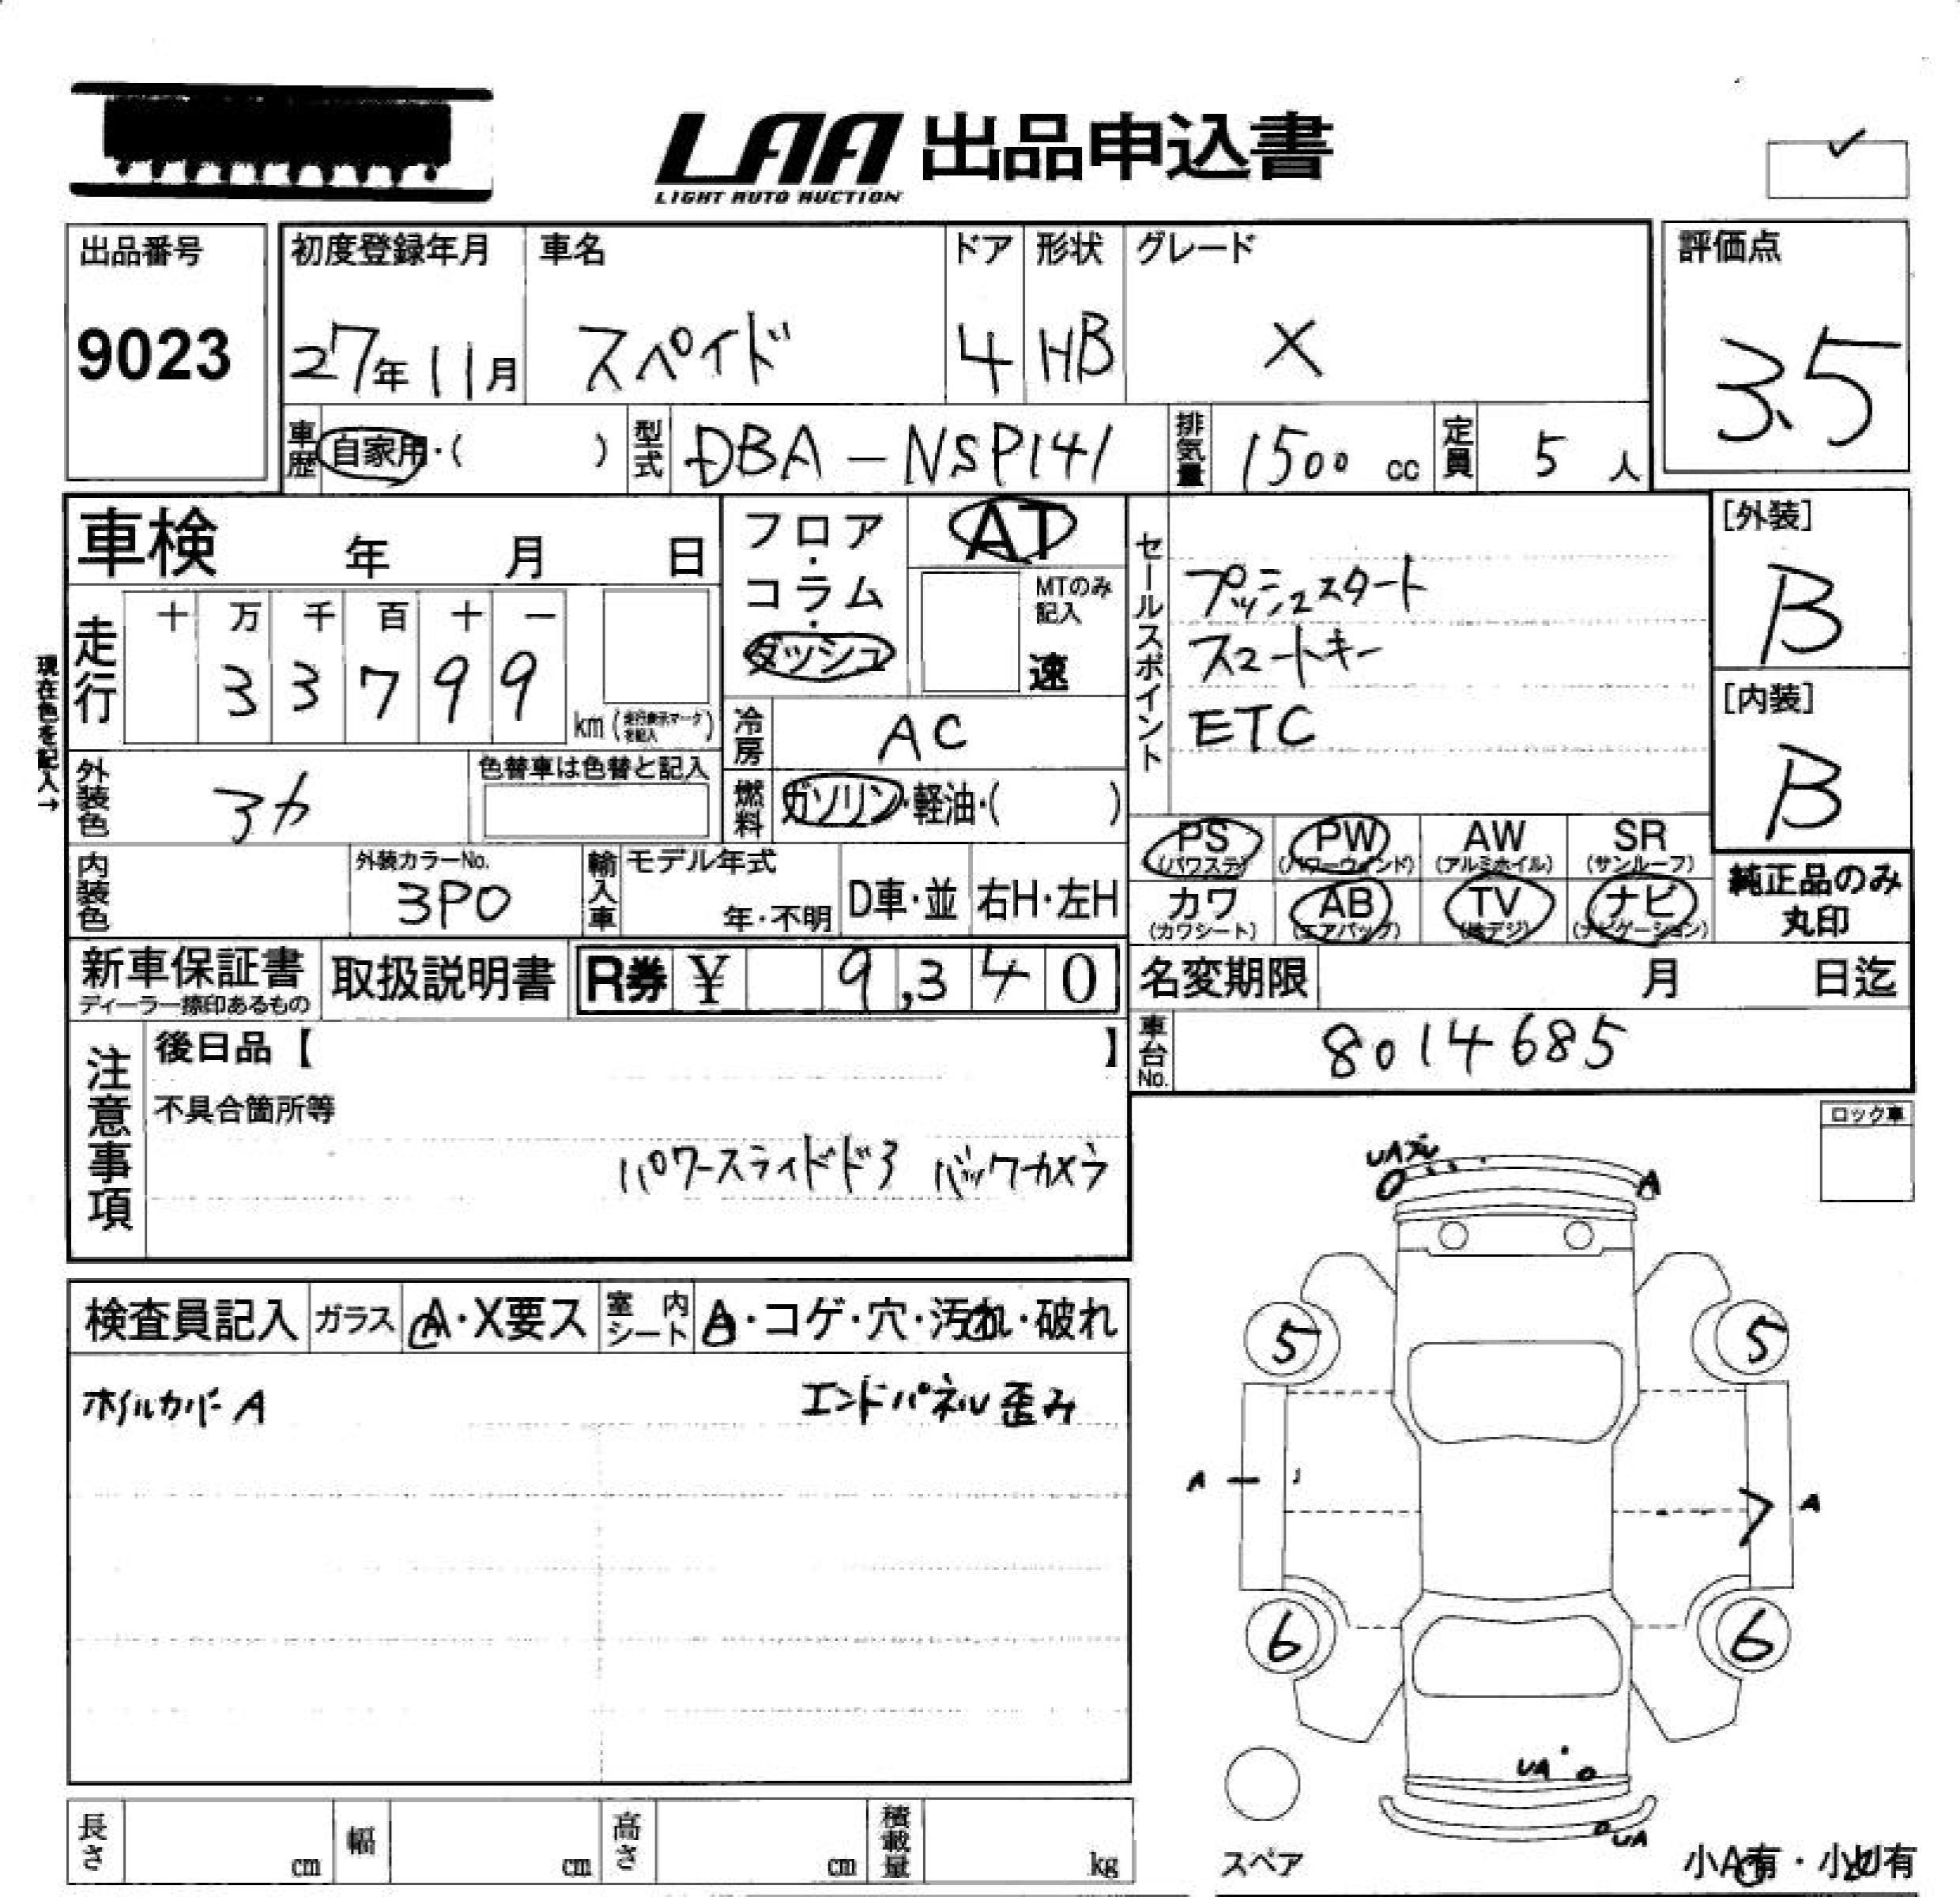 LAA 出品申込書
LIGHT AUTO AUCTION
出品番号
9023
初度登録年月
27年11月
車名
スペイド
ドア
4
形状
HB
グレード
X
評価点
3.5
車歴 自家用・( )
型式 DBA-NSP141
排気量 1500 cc
定員 5 人
車検 年 月 日
現在色を記入→
走行
十 万 千 百 十 一
3 3 7 9 9
km (走行表示マークを記入)
フロア・コラム・ダッシュ
AT
MTのみ記入
速
冷房 AC
燃料 ガソリン・軽油・( )
外装色 アカ
色替車は色替と記入
内装色
外装カラーNo.
3P0
輸入車
モデル年式
年・不明
D車・並
右H・左H
セールスポイント
プッシュスタート
スマートキー
ETC
[外装]
B
[内装]
B
PS (パワステ)
PW (パワーウィンド)
AW (アルミホイル)
SR (サンルーフ)
カワ (カワシート)
AB (エアバッグ)
TV (地デジ)
ナビ (ナビゲーション)
純正品のみ丸印
新車保証書
ディーラー捺印あるもの
取扱説明書
R券 ¥ 9,340
名変期限 月 日迄
車台No. 8014685
注意事項
後日品【 】
不具合箇所等
パワースライドドア バックカメラ
ロック車
検査員記入
ガラス A・X要ス
室内シート A・コゲ・穴・汚れ・破れ
ホイルカバーA
エンドパネル歪み
A
5 5
A A
6 6
UA
UA
スペア
小A有・小U有
長さ cm
幅 cm
高さ cm
積載量 kg